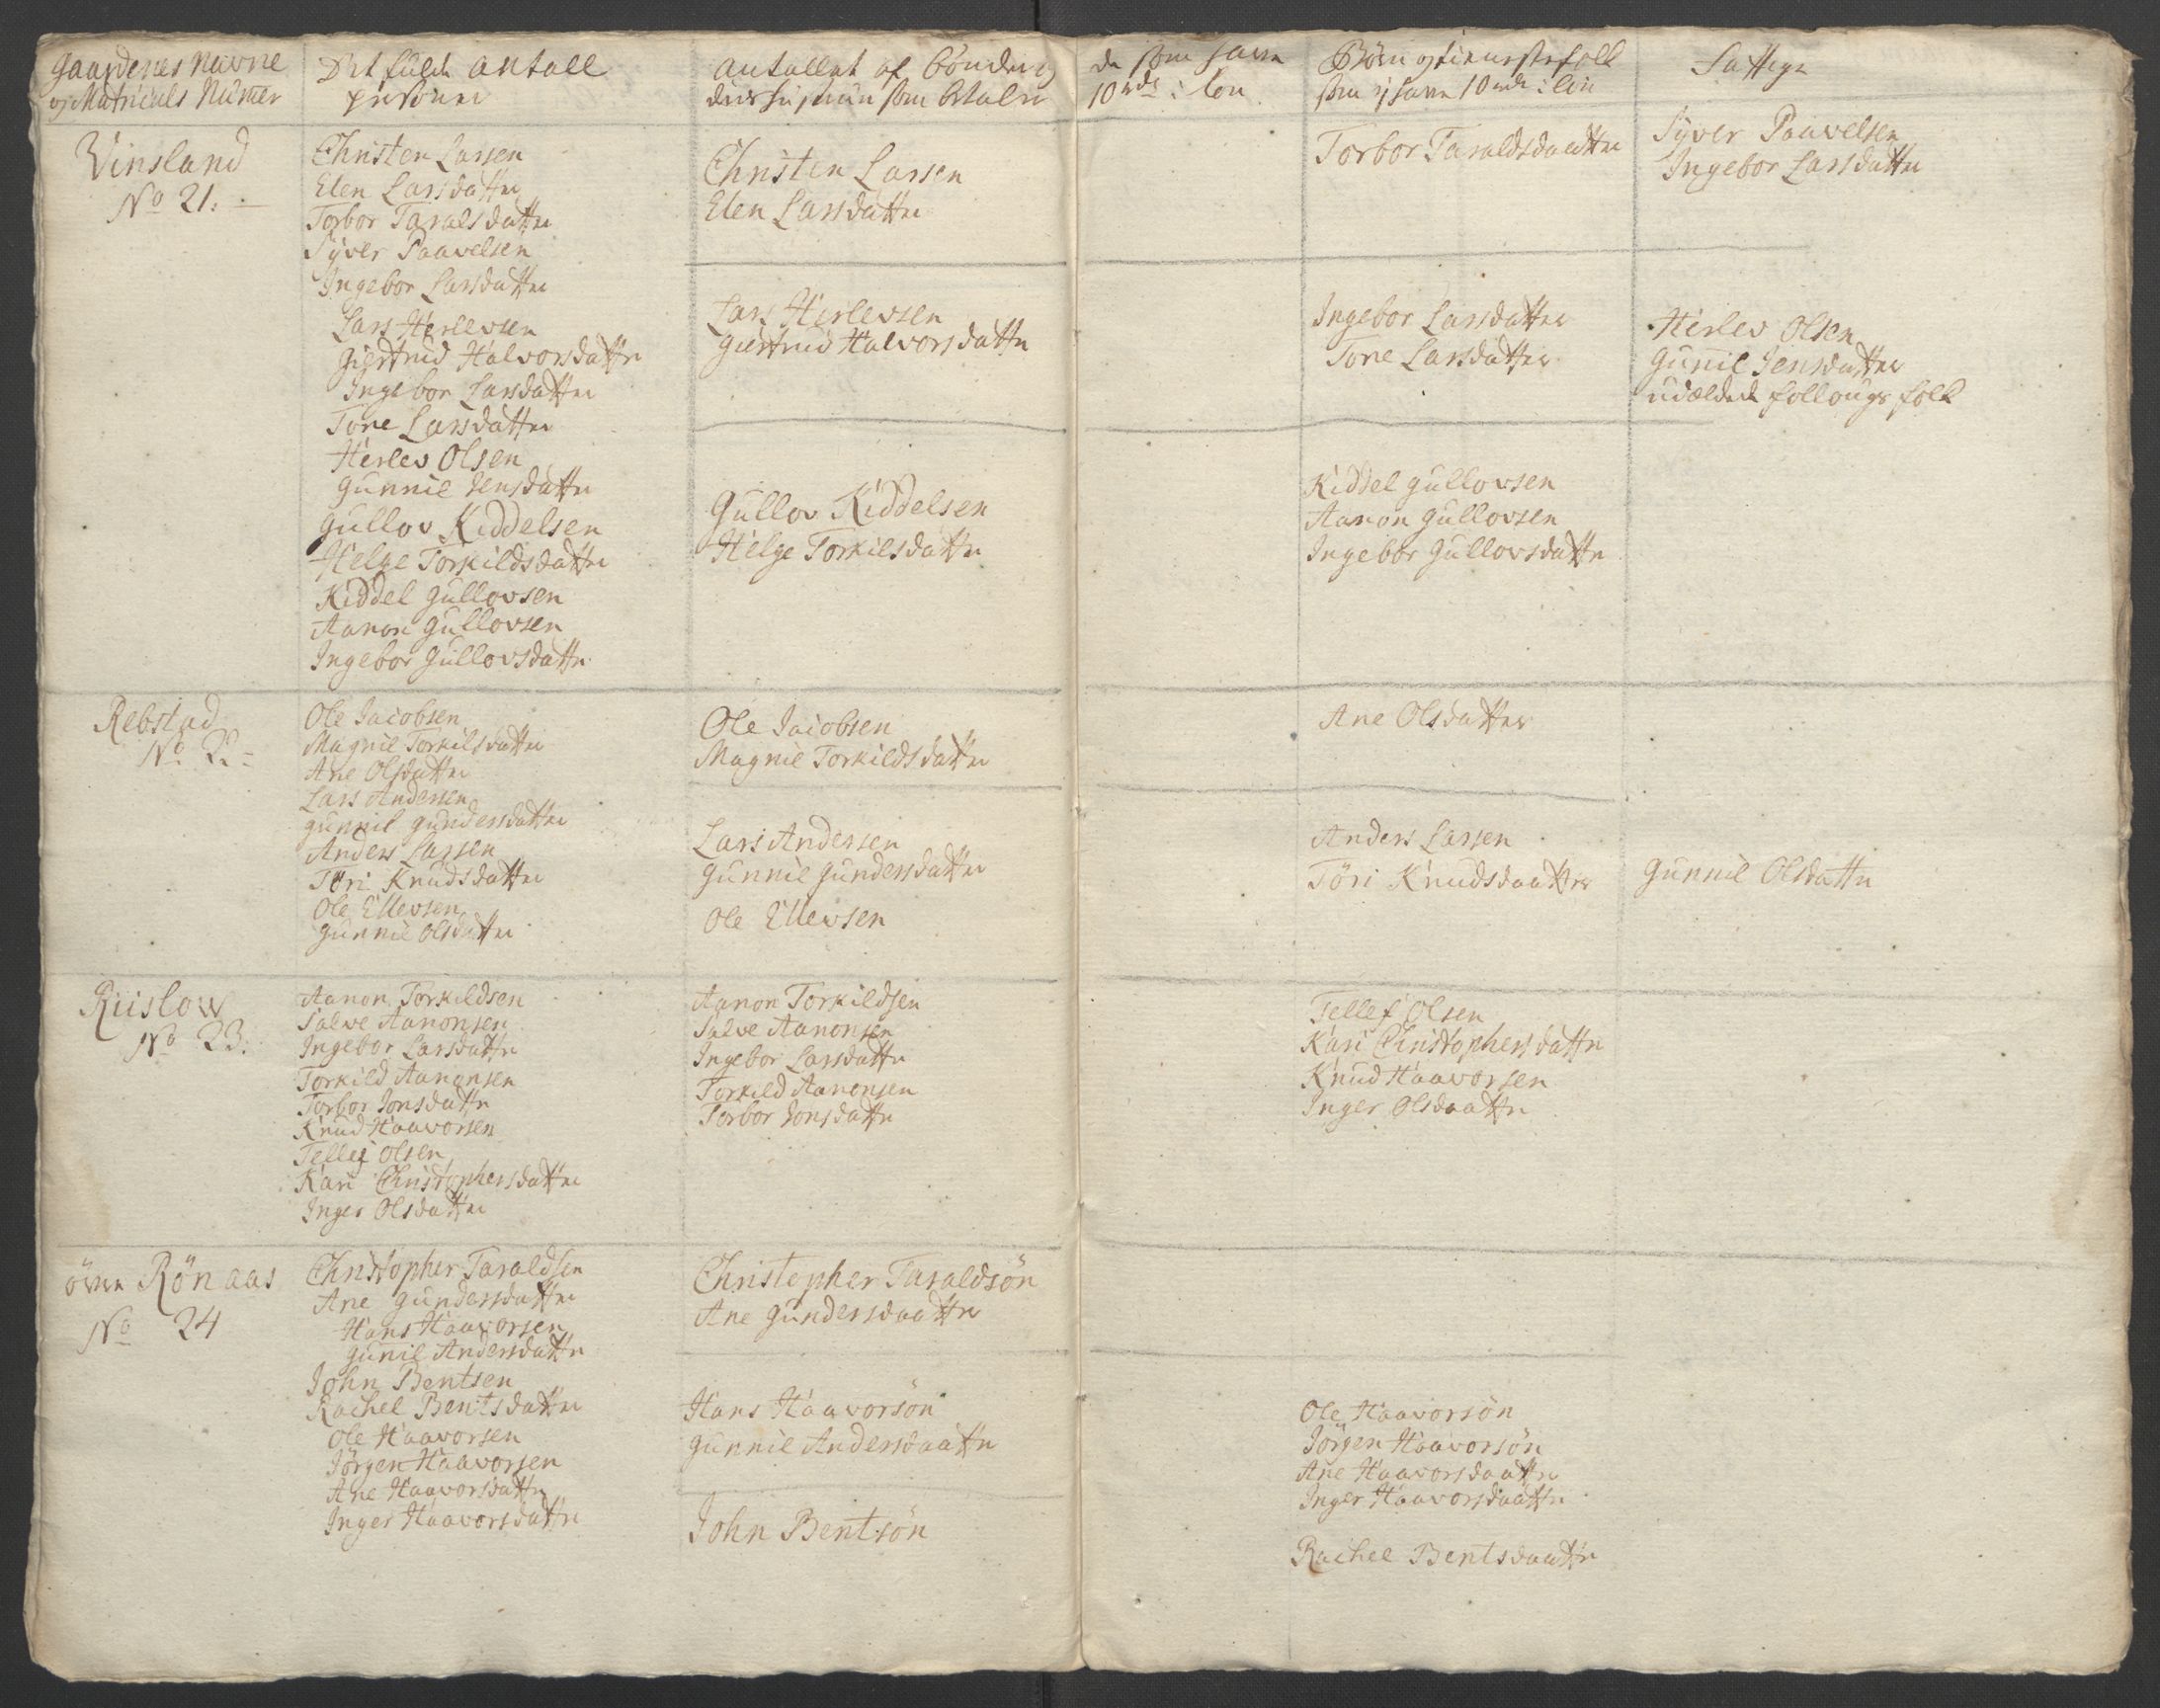 Gaardenes Navne
og Matriculs Numer
Det fulde antall
personer
antallet af bönder og
deres hustruer som betaler
de som have
10 rdr: lön
Börn og tienestefolk
som ej have 10 rdr: lön
Fattige
Vinsland
No 21.
Christen Larsen
Elen Larsdatter
Torbor Taralsdatter
Syver Paavelsen
Ingebor Larsdatter
Lars Herlevsen
Giertrud Halvorsdatter
Ingebor Larsdatter
Tone Larsdatter
Herlev Olsen
Gunnil Jensdatter
Gullov Kiddelsen
Helge Torkildsdatter
Kiddel Gullovsen
Aanon Gullovsen
Ingebor Gullovsdatter
Christen Larsen
Elen Larsdatter
Lars Herlevsen
Giertrud Halvorsdatter
Gullov Kiddelsen
Helge Torkilsdatter
Torbor Taraldsdaatter
Ingebor Larsdatter
Tone Larsdatter
Kiddel Gullovsen
Aanon Gullovsen
Ingebor Gullovsdatter
Syver Paavelsen
Ingebor Larsdatter
Herlev Olsen
Gunnil Jensdatter
folk
Rebstad
No 22
Ole Jacobsen
Magnil Torkilsdatter
Ane Olsdatter
Lars Andersen
Gunnil Gundersdatter
Anders Larsen
Töri Knudsdatter
Ole Ellevsen
Gunnil Olsdatter
Ole Jacobsen
Magnil Torkildsdatter
Lars Andersen
Gunnil Gundersdatter
Ole Ellevsen
Ane Olsdatter
Anders Larsen
Töri Knudsdaatter
Gunnil Olsdatter
Riislow
No 23.
Aanon Torkildsen
Salve Aanonsen
Ingebor Larsdatter
Torkild Aanonsen
Torbor Jonsdatter
Knud Haavorsen
Tellef Olsen
Kari Christophersdatter
Inger Olsdatter
Aanon Torkildsen
Salve Aanonsen
Ingebor Larsdatter
Torkild Aanonsen
Torbor Jonsdatter
Tellef Olsen
Kari Christophersdatter
Knud Haavorsen
Inger Olsdaatter
övre Rönaas
No 24
Christopher Taraldsen
Ane Gundersdatter
Hans Haavorsen
Gunil Andersdatter
John Bentsen
Rachel Bentsdatter
Ole Haavorsen
Jörgen Haavorsen
Ane Haavorsdatter
Inger Haavorsdatter
Christopher Taraldsön
Ane Gundersdaatter
Hans Haavorsön
Gunnil Andersdaatter
John Bentsön
Ole Haavorsön
Jörgen Haavorsön
Ane Haavorsdaatter
Inger Haavorsdaatter
Rachel Bentsdaatter